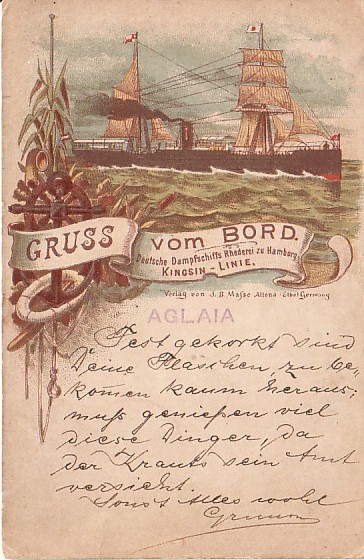 GRUSS vom BORD.
Deutsche Dampfschiffs Rhederei zu Hamburg
KINGSIN-LINIE.
Verlag von J. B. Masse Altona (Elbe) Germany
AGLAIA
Fest gekorkt sind
Deine Flaschen, zu be-
komen kaum heraus;
muß genießen viel
diese Dinger, da
der Krauts sein Amt
versieht.
Sonst Alles wohl